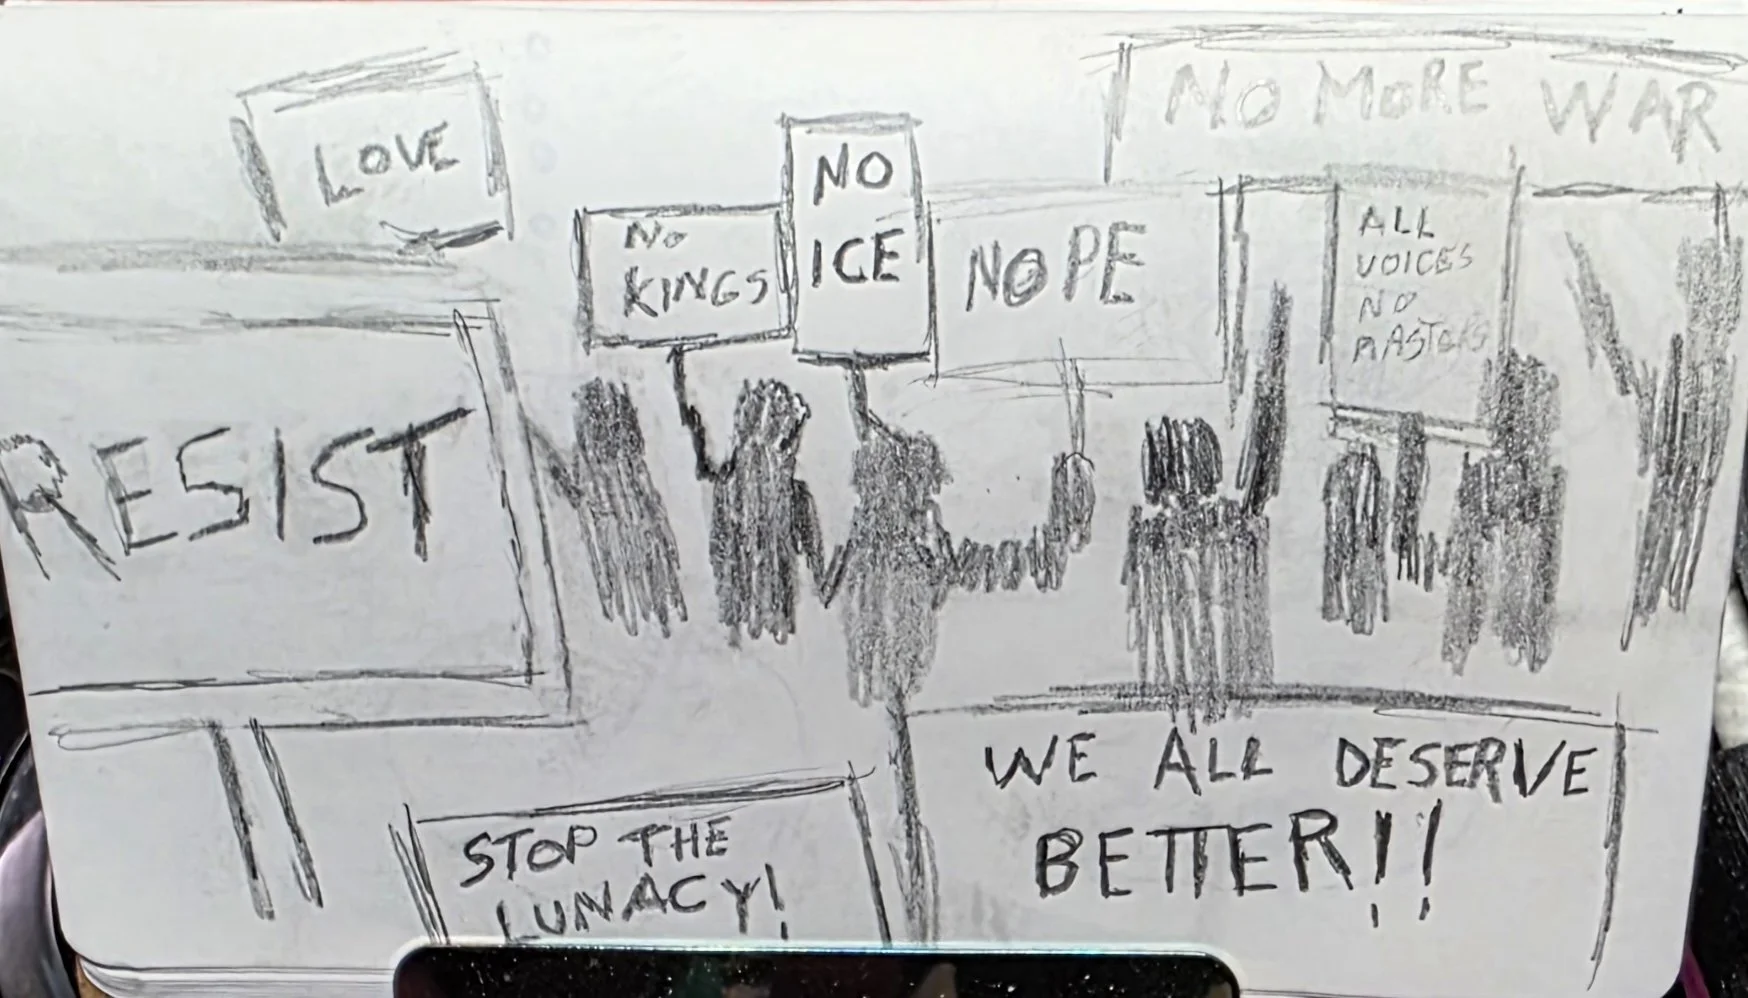 LOVE
NO MORE WAR
NO
KINGS
NO
ICE
NOPE
ALL
VOICES
NO
MASTERS
RESIST
STOP THE
LUNACY!
WE ALL DESERVE
BETTER!!